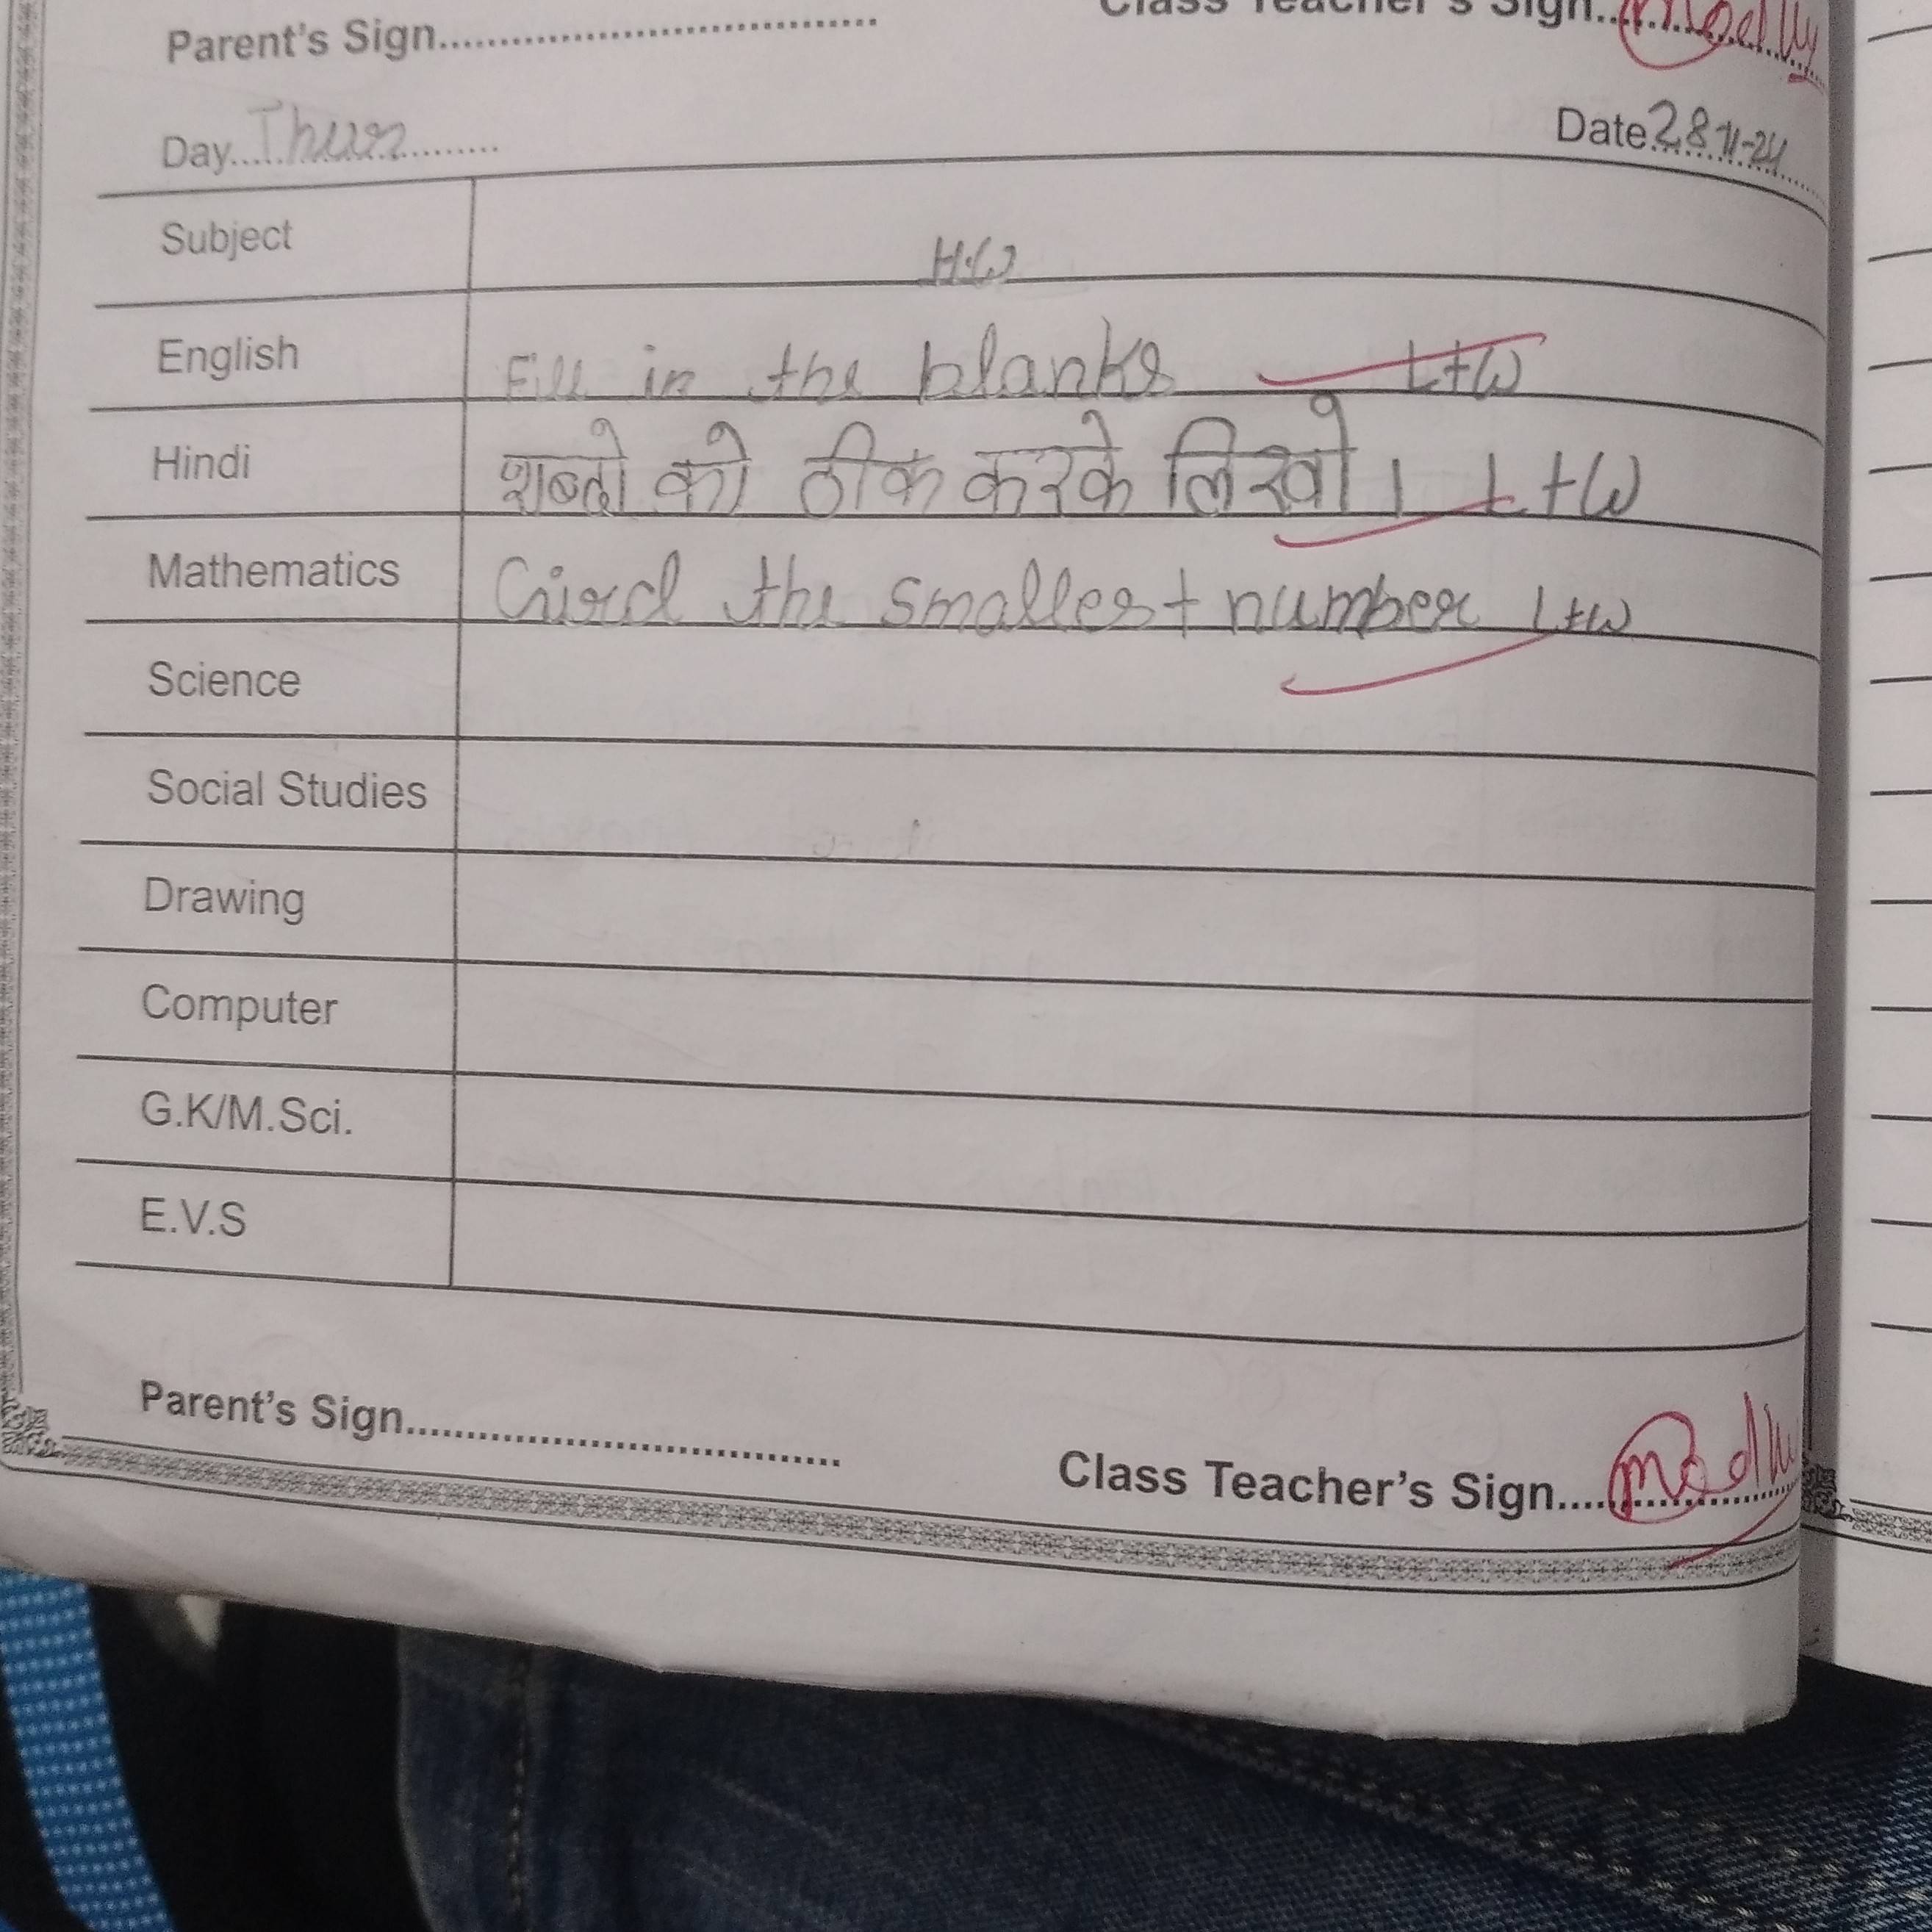 Parent's Sign.................................... Class Teacher's Sign....................
Day....Thur......... Date 28-11-24
Subject H.W
English Fill in the blanks L+W
Hindi शब्दो को ठीक करके लिखो। L+W
Mathematics the smallest number L+W
Science
Social Studies
Drawing
Computer
G.K/M.Sci.
E.V.S
Parent's Sign....................................
Class Teacher's Sign.....Madhu